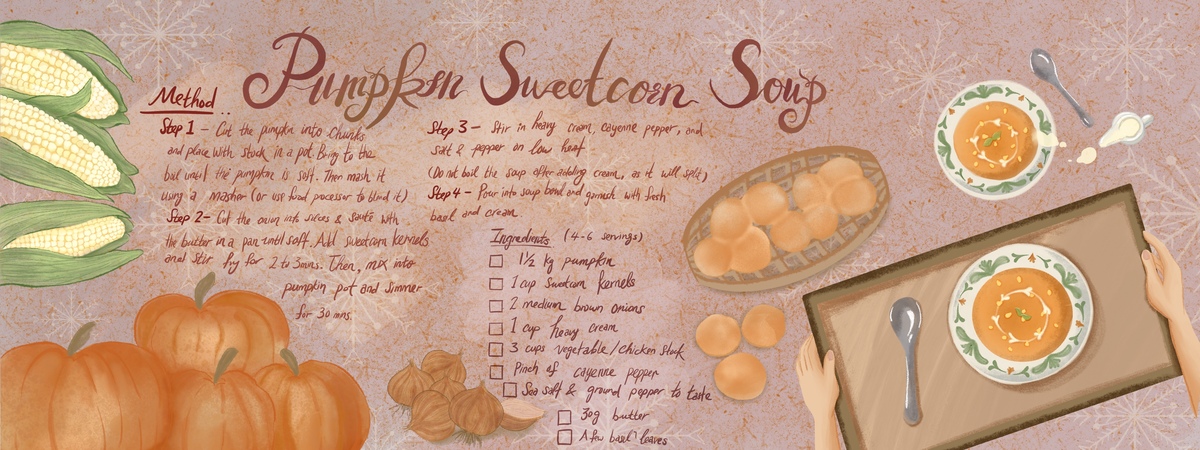 Pumpkin Sweetcorn Soup
Method
Step 1 - Cut the pumpkin into chunks
and place with stock in a pot. Bring to the
boil until the pumpkin is soft. Then mash it
using a masher (or use food processor to blend it)
Step 2 - Cut the onion into slices & sauté with
the butter in a pan until soft. Add sweetcorn kernels
and stir fry for 2 to 3 mins. Then, mix into
pumpkin pot and simmer
for 30 mins.
Step 3 - Stir in heavy cream, cayenne pepper, and
salt & pepper on low heat
(Do not boil the soup after adding cream, as it will split)
Step 4 - Pour into soup bowl and garnish with fresh
basil and cream.
Ingredients (4-6 servings)
1½ kg pumpkin
1 cup sweetcorn kernels
2 medium brown onions
1 cup heavy cream
3 cups vegetable/chicken stock
Pinch of cayenne pepper
Sea salt & ground pepper to taste
30g butter
A few basil leaves